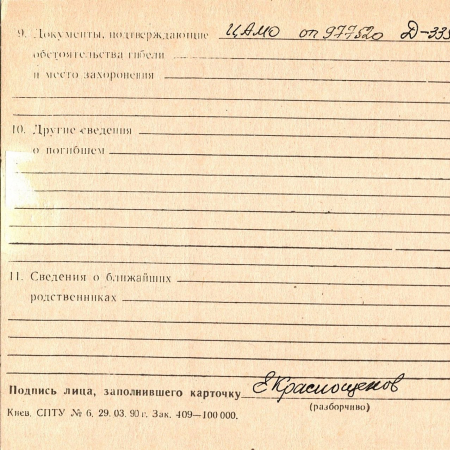 9. Документы, подтверждающие ЦАМО оп 977520 Д-335
обстоятельства гибели
и место захоронения
10. Другие сведения
о погибшем
11. Сведения о ближайших
родственниках
Подпись лица, заполнившего карточку ЕКраснощеков
(разборчиво)
Киев, СПТУ № 6, 29. 03. 90 г. Зак. 409—100 000.